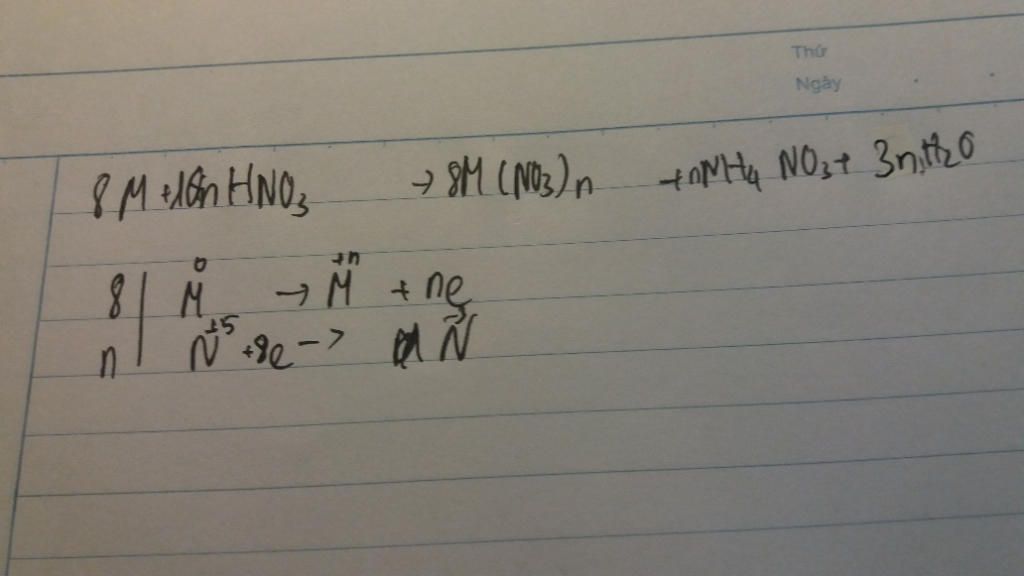 Thứ
Ngày
8M + 10nHNO3 → 8M(NO3)n + nNH4NO3 + 3nH2O
8 | M⁰ → M⁺ⁿ + ne
n | N⁺⁵ + 8e → N⁻³